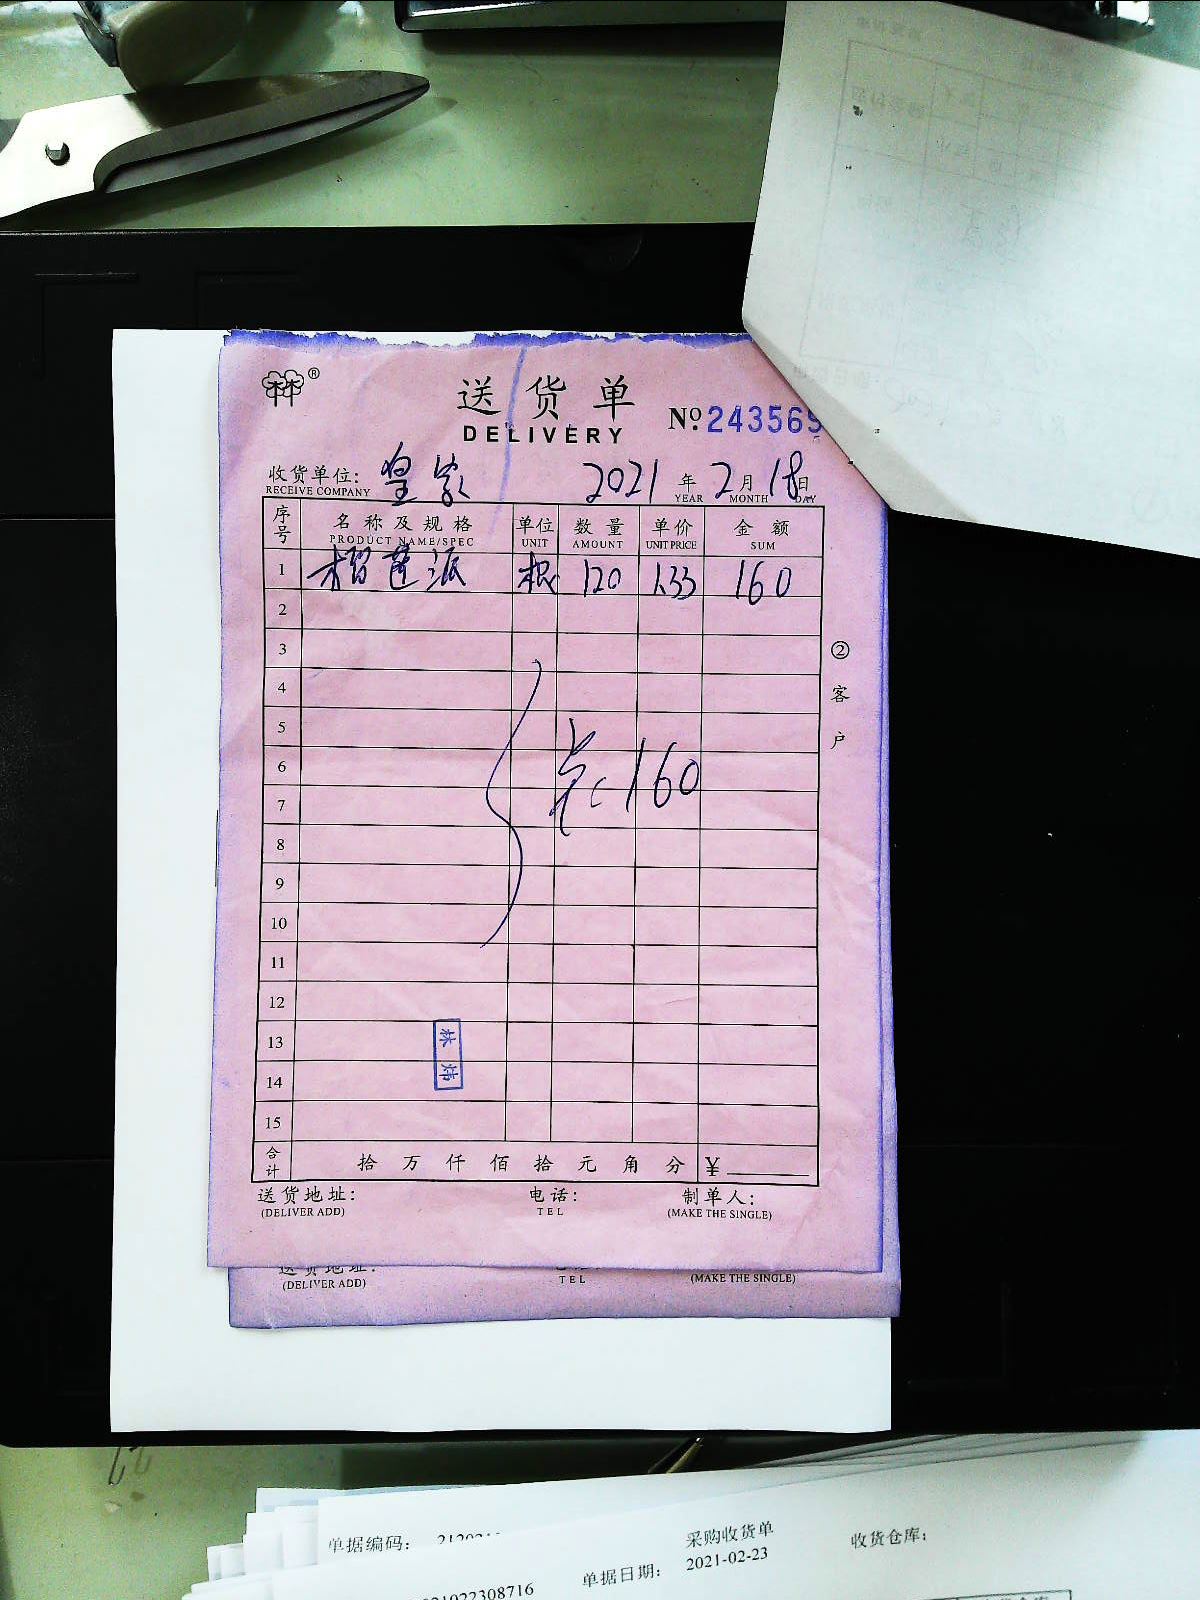 ®
送货单
DELIVERY
Nº:243569
收货单位: 皇家 2021 年 2 月 18 日
RECEIVE COMPANY YEAR MONTH DAY
序号 名称及规格 单位 数量 单价 金额
PRODUCT NAME/SPEC UNIT AMOUNT UNIT PRICE SUM
1 榴莲派 根 120 1.33 160
2
3
4
5
6
160
7
8
9
10
11
12
13
14
15
林炜
② 客户
合计 拾 万 仟 佰 拾 元 角 分 ¥
送货地址: 电话: 制单人:
(DELIVER ADD) TEL (MAKE THE SINGLE)
送货地址:
(DELIVER ADD) TEL (MAKE THE SINGLE)
单据编码: 采购收货单 收货仓库:
单据日期: 2021-02-23